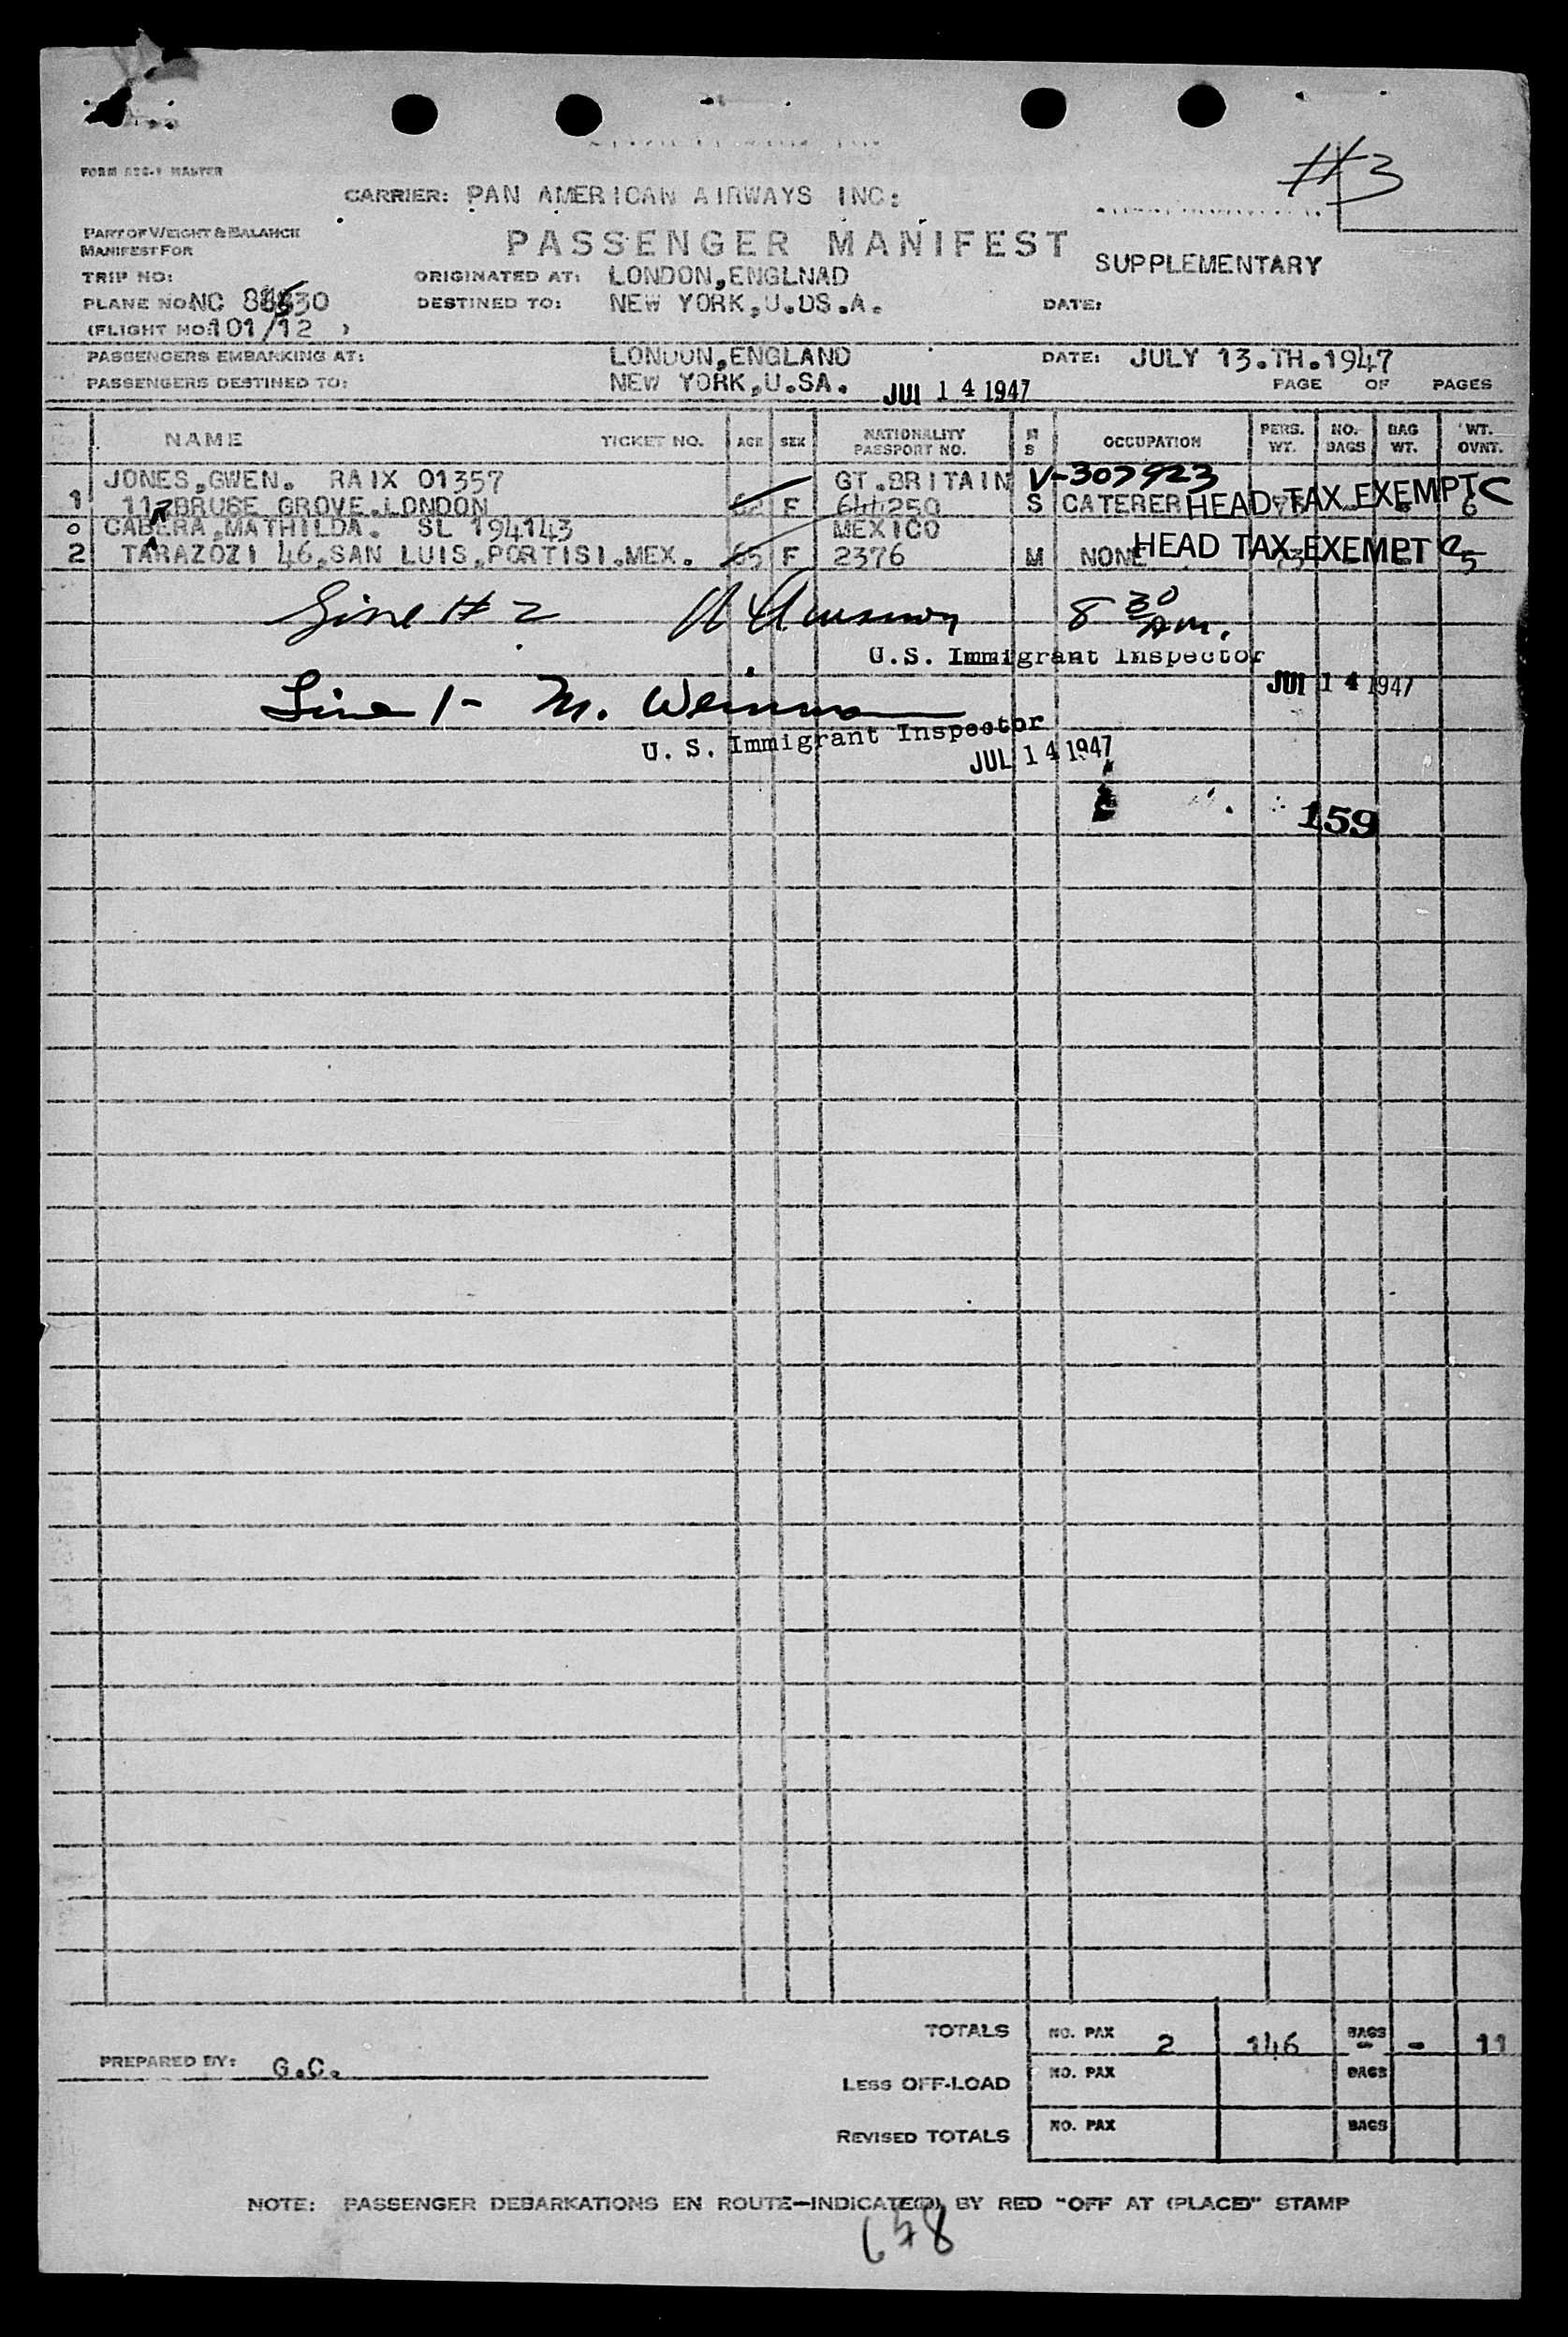 #3
CARRIER: PAN AMERICAN AIRWAYS INC:
PART OF WEIGHT & BALANCE
MANIFEST FOR
PASSENGER MANIFEST
SUPPLEMENTARY
TRIP NO:
ORIGINATED AT: LONDON,ENGLNAD
PLANE NO: NC
DESTINED TO: NEW YORK,U.DS.A.
DATE:
(FLIGHT NO: 101/12 )
PASSENGERS EMBARKING AT: LONDON,ENGLAND DATE: JULY 13.TH.1947
PASSENGERS DESTINED TO: NEW YORK,U.SA. JUL 14 1947 PAGE OF PAGES
NAME TICKET NO. AGE SEX NATIONALITY PASSPORT NO. M S OCCUPATION PERS. WT. NO. BAGS BAG WT. WT. OVNT.
JONES,GWEN. RAIX 01357 GT.BRITAIN V-307923
1 117BRUSE GROVE.LONDON F 644250 S CATERER HEAD TAX EXEMPT C 6
0 CABERA,MATHILDA. SL 194143 MEXICO
2 TARAZOZI 46,SAN LUIS,PORTISI.MEX. 65 F 2376 M NONE HEAD TAX EXEMPT 5
Line # 2 8 30 AM.
U.S. Immigrant Inspector
JUL 14 1947
Line 1- M.
U. S. Immigrant Inspector
JUL 14 1947
159
TOTALS NO. PAX 2 146 BAGS - - 11
PREPARED BY: G.C.
LESS OFF-LOAD NO. PAX BAGS
REVISED TOTALS NO. PAX BAGS
NOTE: PASSENGER DEBARKATIONS EN ROUTE-INDICATE(D) BY RED "OFF AT (PLACE)" STAMP